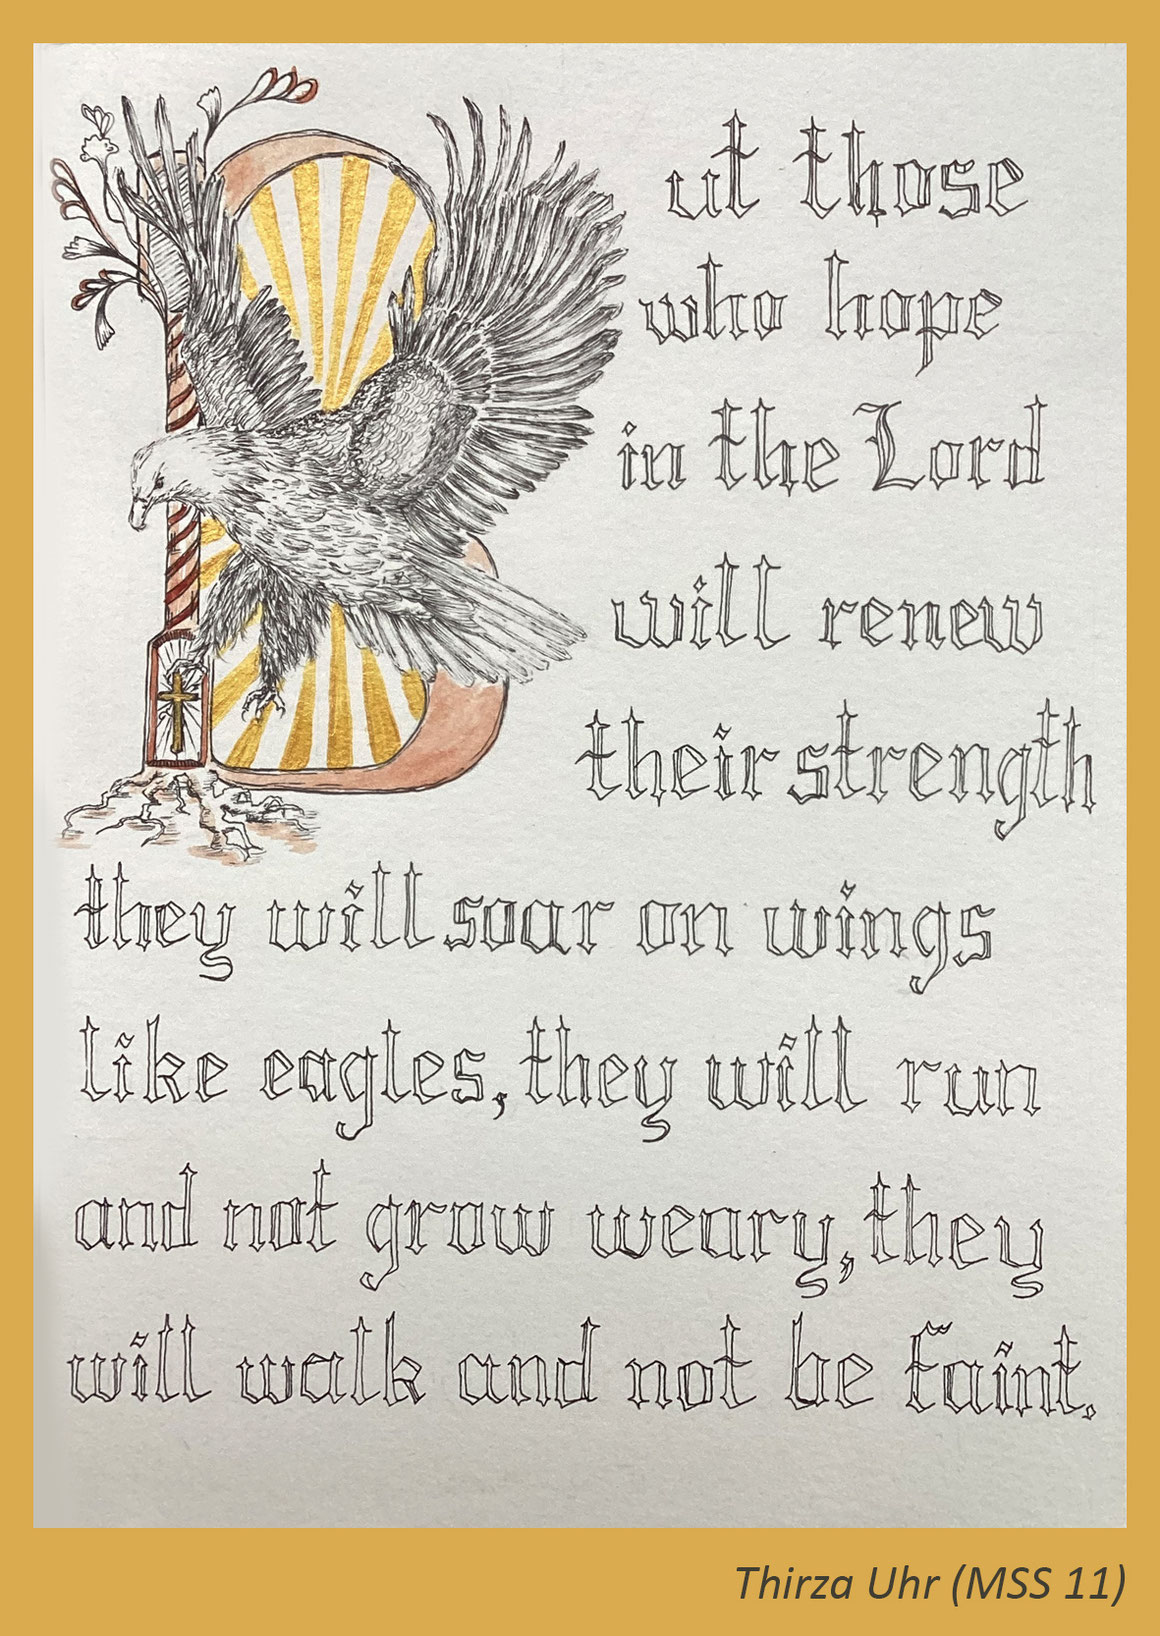 But those
who hope
in the Lord
will renew
their strength
they will soar on wings
like eagles, they will run
and not grow weary, they
will walk and not be faint.
Thirza Uhr (MSS 11)